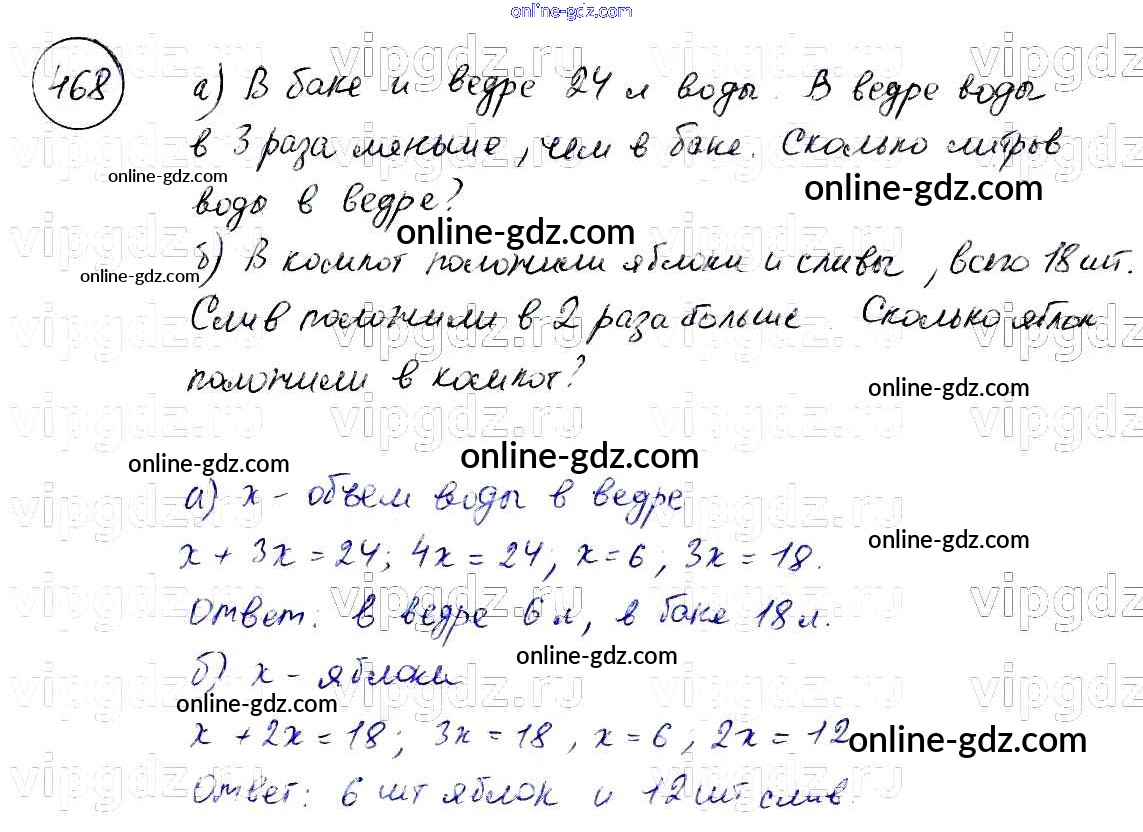 online-gdz.com
vipgdz.ru vipgdz.ru vipgdz.ru vipgdz
468 а) В баке и ведре 24 л воды. В ведре воды
в 3 раза меньше, чем в баке. Сколько литров
online-gdz.com
online-gdz.com
воды в ведре?
online-gdz.com
б) В компот положили яблоки и сливы, всего 18 шт.
online-gdz.com
Слив положили в 2 раза больше. Сколько яблок
положили в компот?
online-gdz.com
vipgdz.ru vipgdz.ru vipgdz.ru vipgdz
online-gdz.com
online-gdz.com
а) x - объем воды в ведре
online-gdz.com
x + 3x = 24; 4x = 24, x = 6, 3x = 18.
Ответ: в ведре 6 л, в баке 18 л.
online-gdz.com
б) x - яблоки
online-gdz.com
x + 2x = 18; 3x = 18, x = 6, 2x = 12
online-gdz.com
Ответ: 6 шт яблок и 12 шт слив.